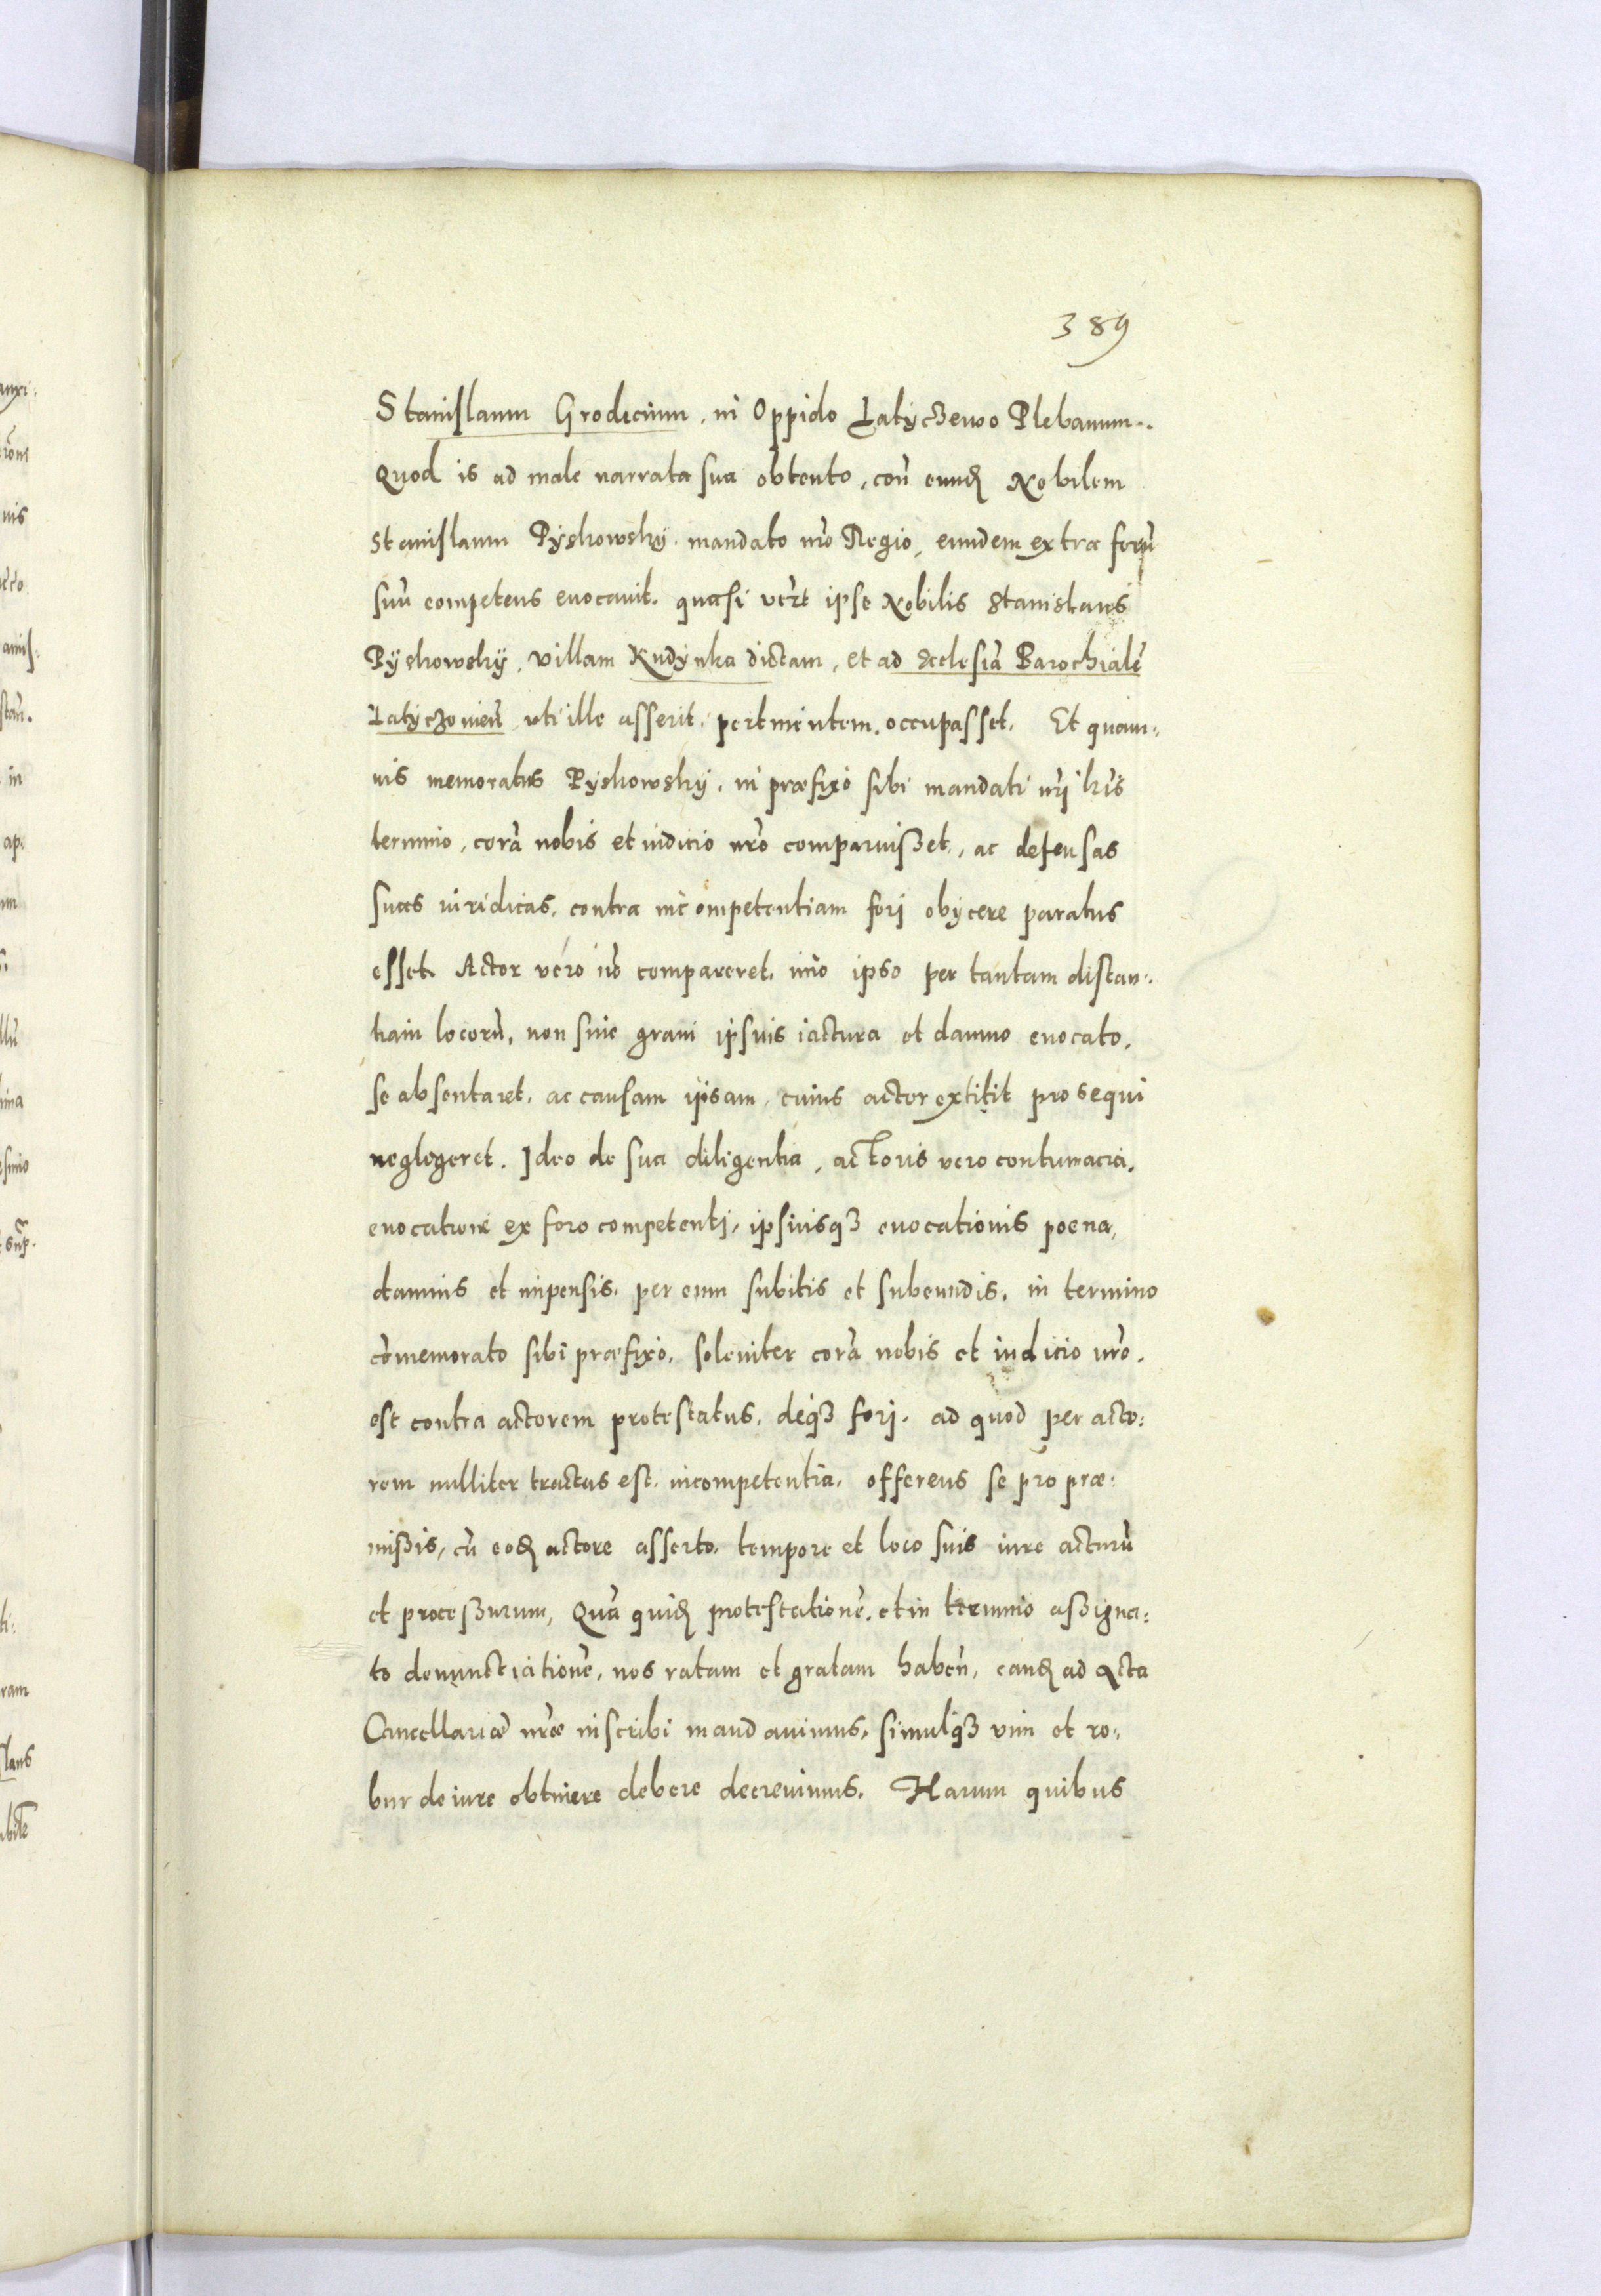 389
Stanislaum Grodicium, in Oppido Latyczewo Plebanum.
Quod is ad male narrata sua obtento, con̄ eund̨ Nobilem
Stanislaum Pyskowsky. mandato nr̄o Regio, eundem extra forū
suū competens euocauit. quasi verò ipse Nobilis Stanislaus
Pyskowsky, villam Kudynka dictam, et ad Ecclesiā Parochialē
Latyczouien̄ vti ille asserit, pertinentem, occupasset. Et quam-
uis memoratus Pyskowsky, in præfixo sibi mandati nr̄i hui9
termino, corā nobis et iuditio nr̄o comparuisset, ac defensas
suas iuridicas, contra incompetentiam fori obijcere paratus
esset. Actor vero nō compareret. imò ipso per tantam distan-
tiam locorū, non sine graui ipsius iactura et damno euocato,
se absentaret, ac causam ipsam, cuius actor extitit prosequi
neglegeret. Ideo de sua diligentia, actoris vero contumacia,
euocatione ex foro competenti, ipsiusqʒ euocationis poena,
damnis et impensis, per eum subitis et subeundis, in termino
cōmemorato sibi præfixo, soleniter corā nobis et iudicio nr̄o.
est contra actorem protestatus, deqʒ fori, ad quod per acto:
rem nulliter tractus est, incompetentia, offerens se pro præ:
missis, cū eod̨ actore asserto, tempore et loco suis iure acturū
et processurum, Quā quid̨ protestationē, et in termino assigna:
to denunctiationē, nos ratam et gratam haben̄, eand̨ ad Acta
Cancellariæ nr̄æ inscribi mandauimus, simulqʒ vim et ro:
bur de iure obtinere debere decreuimus. Harum quibus